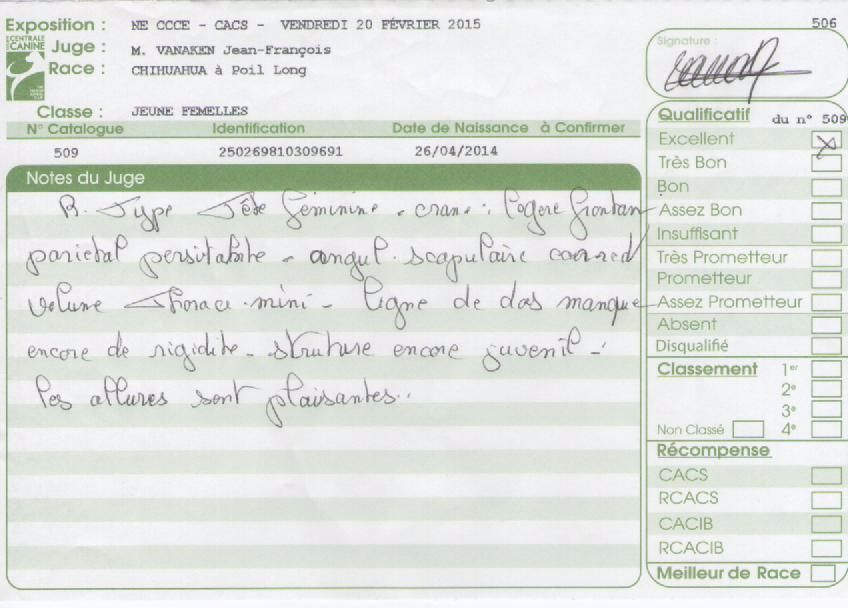 506
Exposition : NE CCCE - CACS - VENDREDI 20 FÉVRIER 2015
CENTRALE CANINE
Juge : M. VANAKEN Jean-François
Race : CHIHUAHUA à Poil Long
Signature :
Classe : JEUNE FEMELLES
N° Catalogue Identification Date de Naissance à Confirmer
509 250269810309691 26/04/2014
Notes du Juge
B. Type Tête féminine - crane : logere frontan
parietal persitabite - angul. scapulaire correct
volume Thorace mini - ligne de dos manque
encore de rigidite - struture encore juvenil -
les allures sont plaisantes..
Qualificatif du n° 509
Excellent X
Très Bon
Bon
Assez Bon
Insuffisant
Très Prometteur
Prometteur
Assez Prometteur
Absent
Disqualifié
Classement 1er
2e
3e
Non Classé 4e
Récompense
CACS
RCACS
CACIB
RCACIB
Meilleur de Race